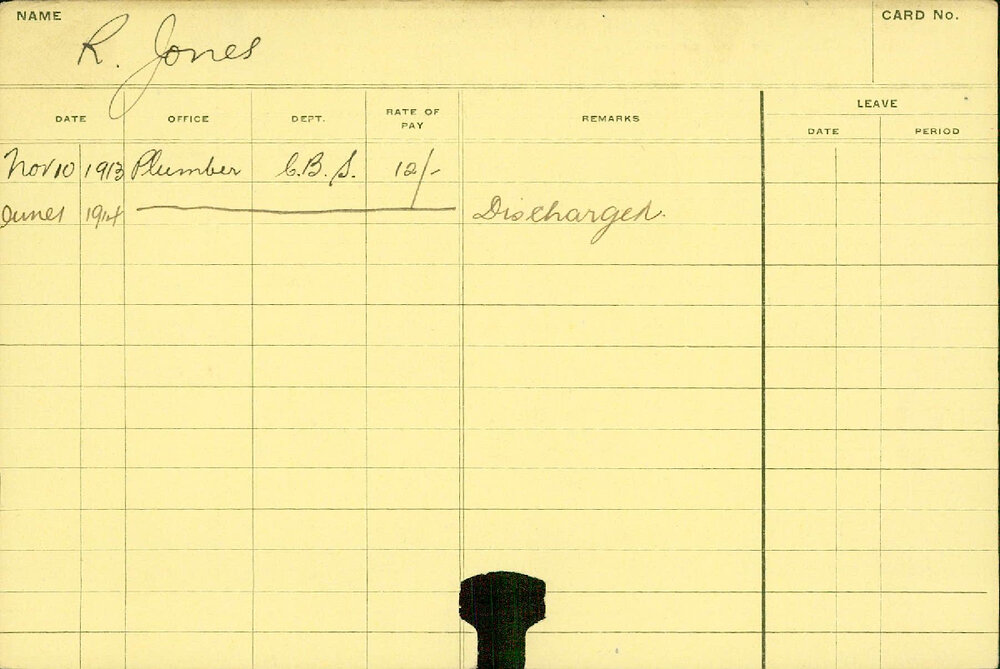 NAME CARD No.
R. Jones
LEAVE
DATE OFFICE DEPT. RATE OF PAY REMARKS DATE PERIOD
Nov 10 1913 Plumber C.B.S. 12/-
June 1 1914 Discharged.